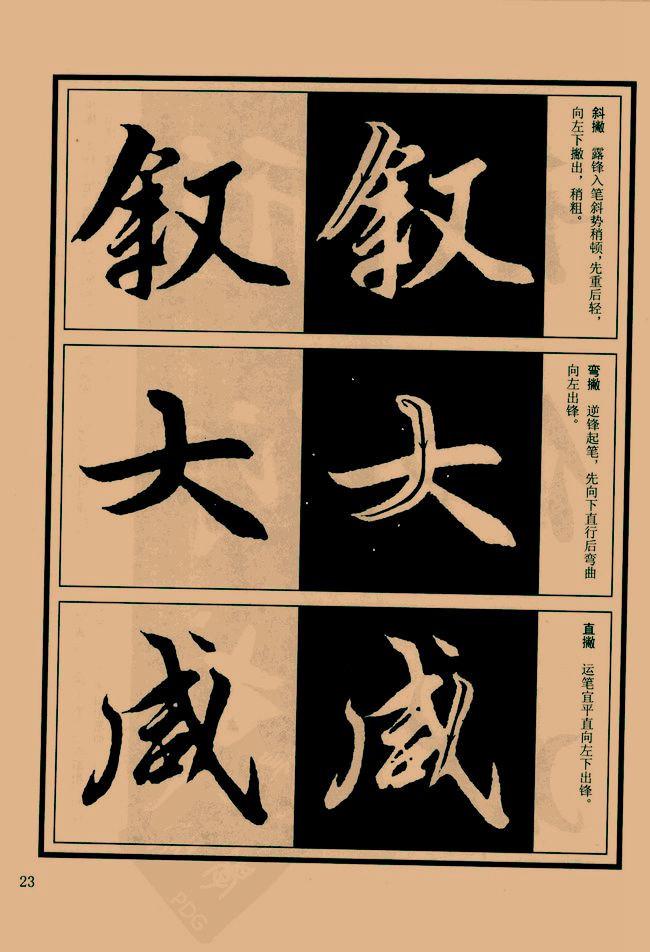 斜撇　露锋入笔斜势稍顿，先重后轻，
向左下撇出，稍粗。
叙 叙
弯撇　逆锋起笔，先向下直行后弯曲
向左出锋。
大 大
直撇　运笔宜平直向左下出锋。
咸 咸
23
PDG